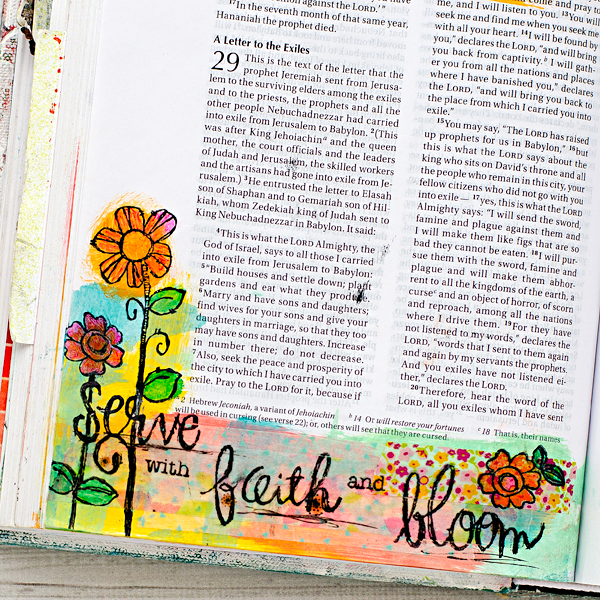 17In the seventh month of that same year,
Hananiah the prophet died.
A Letter to the Exiles
29 This is the text of the letter that the
prophet Jeremiah sent from Jerusa-
lem to the surviving elders among the exiles
and to the priests, the prophets and all the
other people Nebuchadnezzar had carried
into exile from Jerusalem to Babylon. 2(This
was after King Jehoiachin a and the queen
mother, the court officials and the leaders
of Judah and Jerusalem, the skilled workers
and the artisans had gone into exile from Je-
rusalem.) 3He entrusted the letter to Elasah
son of Shaphan and to Gemariah son of Hil-
kiah, whom Zedekiah king of Judah sent to
King Nebuchadnezzar in Babylon. It said:
4This is what the LORD Almighty, the
God of Israel, says to all those I carried
into exile from Jerusalem to Babylon:
5“Build houses and settle down; plant
gardens and eat what they produce.
6Marry and have sons and daughters;
find wives for your sons and give your
daughters in marriage, so that they too
may have sons and daughters. Increase
in number there; do not decrease.
7Also, seek the peace and prosperity of
the city to which I have carried you into
exile. Pray to the LORD for it, because if
me, and I will listen to you. 13You will
seek me and find me when you seek me
with all your heart. 14I will be found by
you,” declares the LORD, “and will bring
you back from captivity. b I will gath-
er you from all the nations and places
where I have banished you,” declares
the LORD, “and will bring you back to
the place from which I carried you into
exile.”
15You may say, “The LORD has raised
up prophets for us in Babylon,” 16but
this is what the LORD says about the
king who sits on David’s throne and all
the people who remain in this city, your
fellow citizens who did not go with you
into exile— 17yes, this is what the LORD
Almighty says: “I will send the sword,
famine and plague against them and
I will make them like figs that are so
bad they cannot be eaten. 18I will pur-
sue them with the sword, famine and
plague and will make them abhor-
rent to all the kingdoms of the earth, a
curse c and an object of horror, of scorn
and reproach, among all the nations
where I drive them. 19For they have
not listened to my words,” declares the
LORD, “words that I sent to them again
and again by my servants the prophets.
And you exiles have not listened ei-
ther,” declares the LORD.
20Therefore, hear the word of the
LORD, all you exiles whom I have sent
2 Hebrew Jeconiah, a variant of Jehoiachin b 14 Or will restore your fortunes c 18 That is, their names
will be used in cursing (see verse 22); or, others will see that they are cursed.
Serve
with faith and bloom